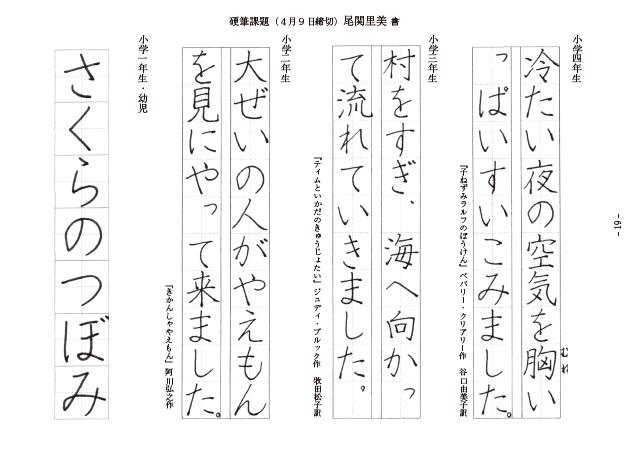 硬筆課題（４月９日締切）尾関里美 書
小学四年生
冷たい夜の空気を胸い
むね
っぱいすいこみました。
『子ねずみラルフのぼうけん』ベバリー・クリアリー作　谷口由美子訳
小学三年生
村をすぎ、海へ向かっ
て流れていきました。
『ティムといかだのきゅうじょたい』ジュディ・ブルック作　牧田松子訳
小学二年生
大ぜいの人がやえもん
を見にやって来ました。
『きかんしゃやえもん』阿川弘之作
小学一年生・幼児
さくらのつぼみ
- 19 -